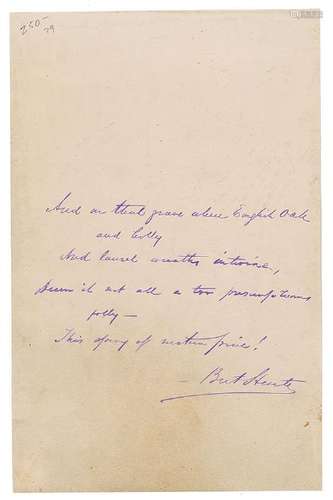 250-
79
And on that grave where English Oak
and holly
And laurel wreaths intwine,
Deem it not all a too presumptuous
folly—
This spray of western pine!
— Bret Harte